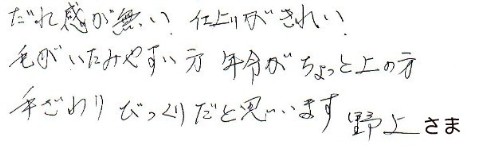 だれ感が無い、仕上りがきれい、
毛がいたみやすい方 年令がちょっと上の方
手ざわり びっくりだと思います 野上さま